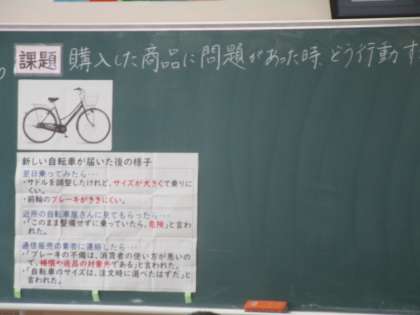 課題 購入した商品に問題があった時、どう行動す
新しい自転車が届いた後の様子
翌日乗ってみたら…
・サドルを調整したけれど、サイズが大きくて乗りに
くい。
・前輪のブレーキがききにくい。
近所の自転車屋さんに見てもらったら…
・「このまま整備せずに乗っていたら、危険」と言わ
れた。
通信販売の業者に連絡したら…
・「ブレーキの不備は、消費者の使い方が悪いの
で、補償や返品の対象外である」と言われた。
・「自転車のサイズは、注文時に選べたはずだ」
と言われた。